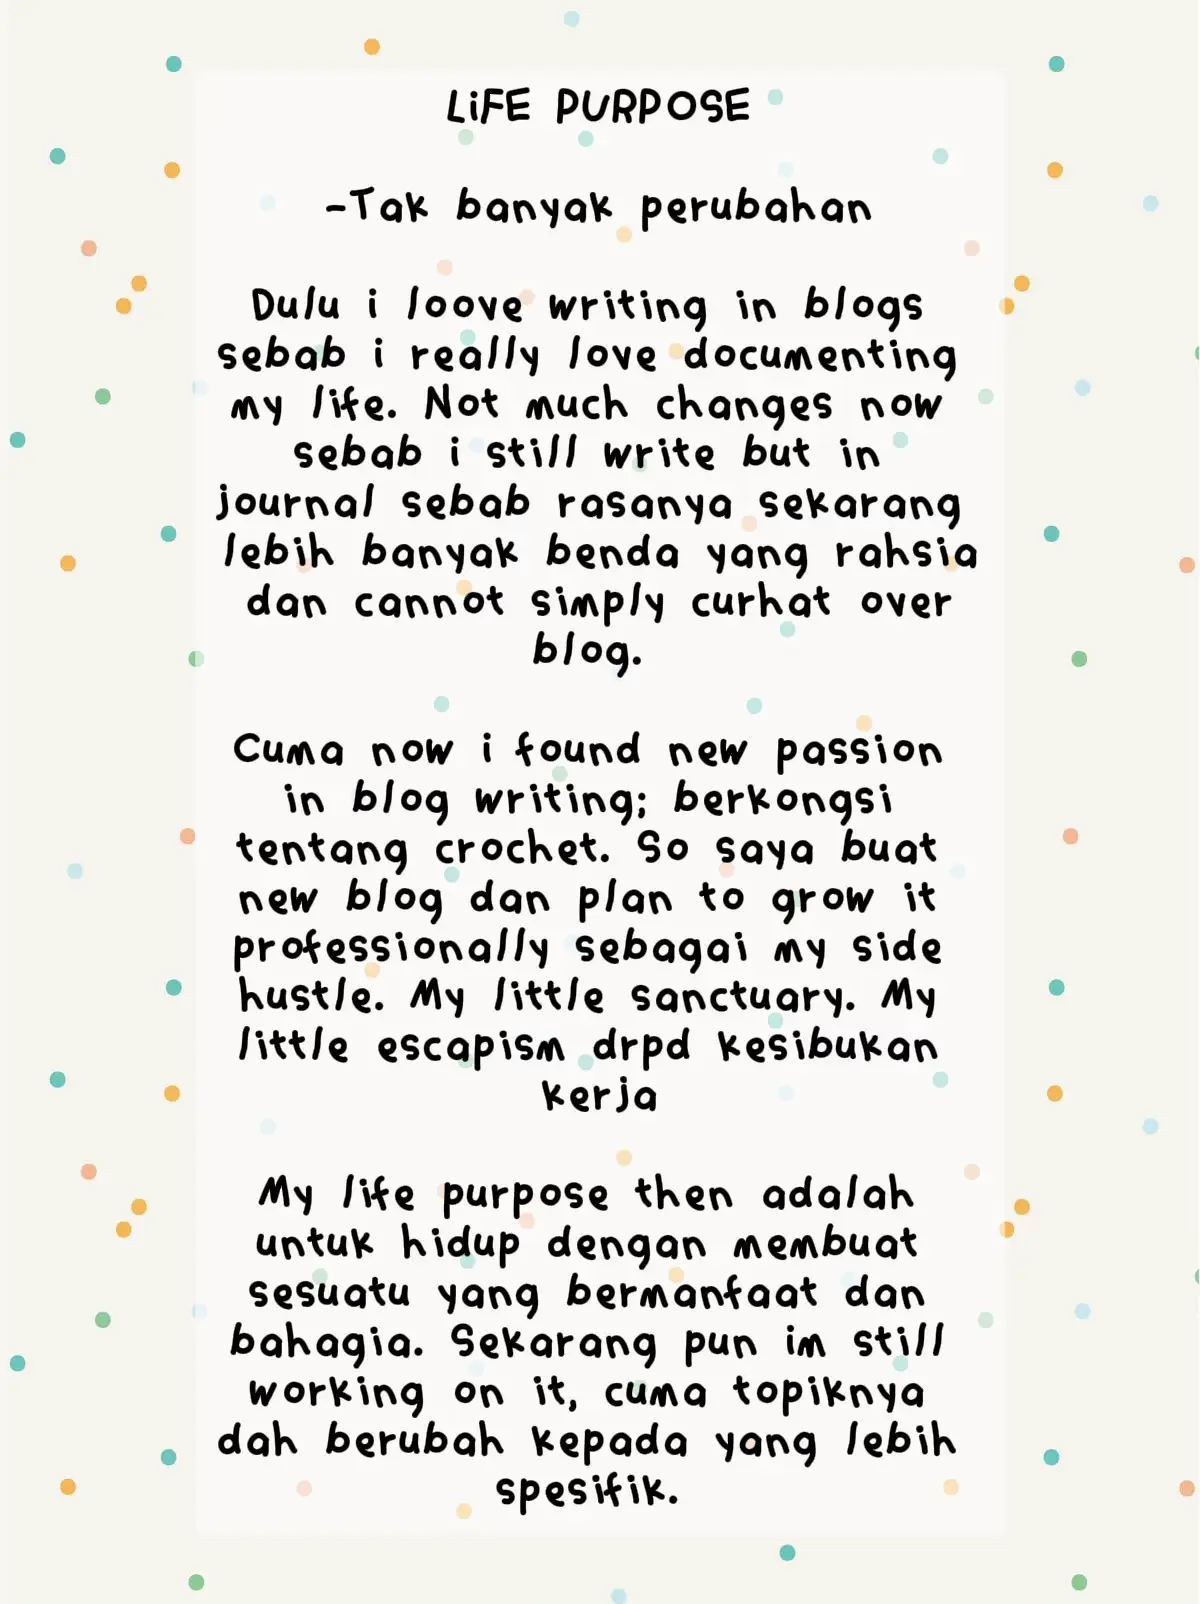 LiFE PURPOSE
-Tak banyak perubahan
Dulu i loove writing in blogs
sebab i really love documenting
my life. Not much changes now
sebab i still write but in
journal sebab rasanya sekarang
lebih banyak benda yang rahsia
dan cannot simply curhat over
blog.
Cuma now i found new passion
in blog writing; berkongsi
tentang crochet. So saya buat
new blog dan plan to grow it
professionally sebagai my side
hustle. My little sanctuary. My
little escapism drpd kesibukan
kerja
My life purpose then adalah
untuk hidup dengan membuat
sesuatu yang bermanfaat dan
bahagia. Sekarang pun im still
working on it, cuma topiknya
dah berubah kepada yang lebih
spesifik.